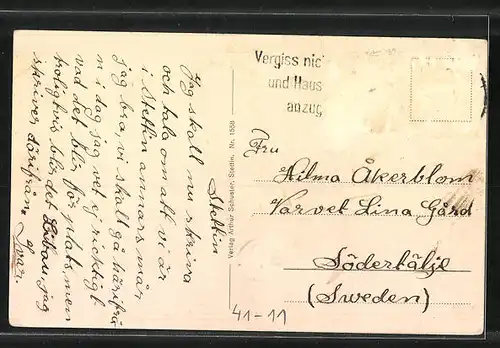 Stettin
Jag skall nu skriva
och tala om att vi är
i Stettin annars mår
jag bra, vi skall gå härifrå
n i dag jag vet ej riktigt
vad det blir för plats men
troligtvis blir det Libau, jag
skriver därifrån. Ivar.
Verlag Arthur Schuster, Stettin. Nr. 1558
Vergiss nic
und Haus
anzug
Fru
Hilma Åkerblom
Varvet Lina Gård
Södertälje
(Sweden)
41-11